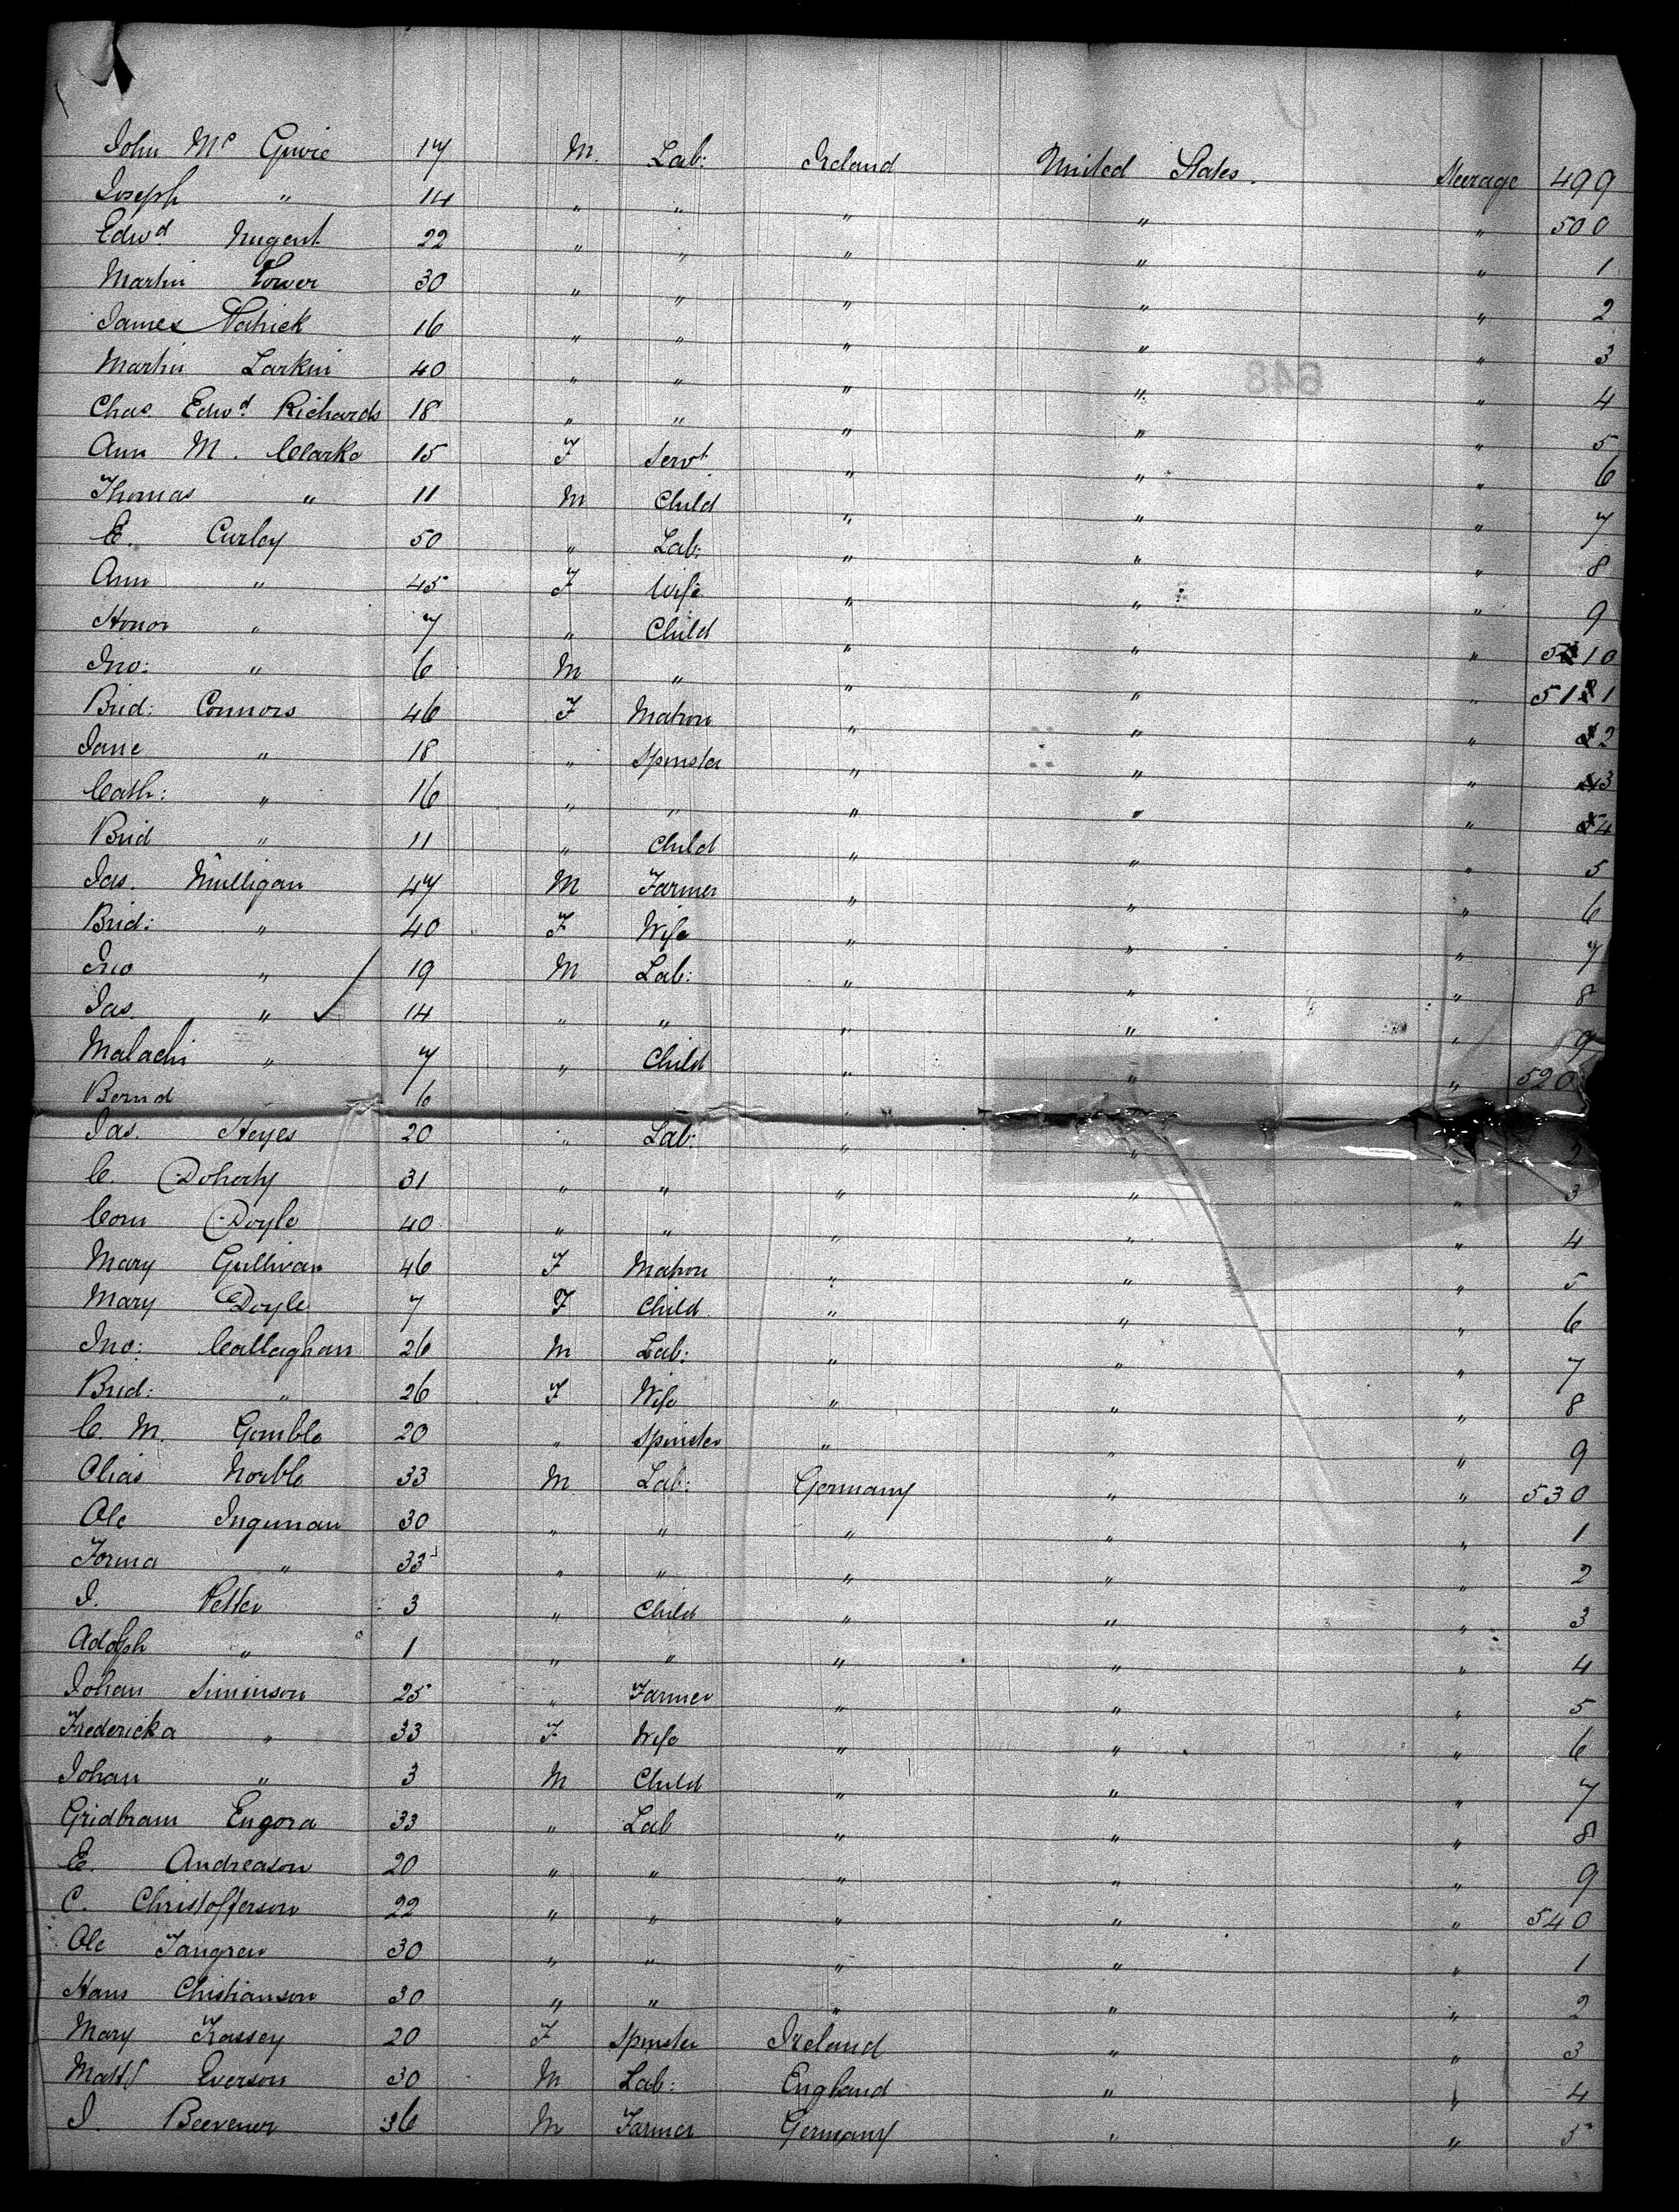 John Mc Guire 17 M. Lab: Ireland United States. Steerage 499
Joseph " 14 " " " " " 500
Edwd Nugent 22 " " " " " 1
Martin Tower 30 " " " " " 2
James Patrick 16 " " " " " 3
Martin Larkin 40 " " " " " 4
Chas. Edwd Richards 18 " " " " " 5
Ann M. Clarke 15 F Servt. " " " 6
Thomas " 11 M Child " " " 7
E. Curley 50 " Lab: " " " 8
Ann " 45 F Wife " " " 9
Honor " 7 " Child " " " 510
Jno: " 6 M " " " " 511
Brid: Connors 46 F Matron " " " 2
Jane " 18 " Spinster " " " 3
Cath: " 16 " " " " " 4
Brid " 11 " Child " " " 5
Jas. Mulligan 47 M Farmer " " " 6
Brid: " 40 F Wife " " " 7
Jno " 19 M Lab: " " " 8
Jas. " 14 " " " " " 9
Malachi " 7 " Child " " " 520
Bernd 6
Jas. Heyes 20 " Lab: " " " 2
C. Doherty 31 " " " " " 3
Corn Doyle 40 " " " " " 4
Mary Gullivan 46 F Matron " " " 5
Mary Doyle 7 F Child " " " 6
Jno: Callaghan 26 M Lab: " " " 7
Brid: " 26 F Wife " " " 8
C. M. Gamble 20 " Spinster " " " 9
Olias Norble 33 M Lab: Germany " " 530
Ole Inguman 30 " " " " " 1
Forma " 33 " " " " " 2
I. Petter 3 " Child " " " 3
Adolph " 1 " " " " " 4
Johan Siminson 25 " Farmer " " " 5
Fredericka " 33 F Wife " " " 6
Johan " 3 M Child " " " 7
Gridbram Engora 33 " Lab " " " 8
E. Andreason 20 " " " " " 9
C. Christofferson 22 " " " " " 540
Ole Tangren 30 " " " " " 1
Hans Christianson 30 " " " " " 2
Mary Kassey 20 F Spinster Ireland " " 3
Matt Everson 30 M Lab: England " " 4
I. Beevener 36 M Farmer Germany " " 5